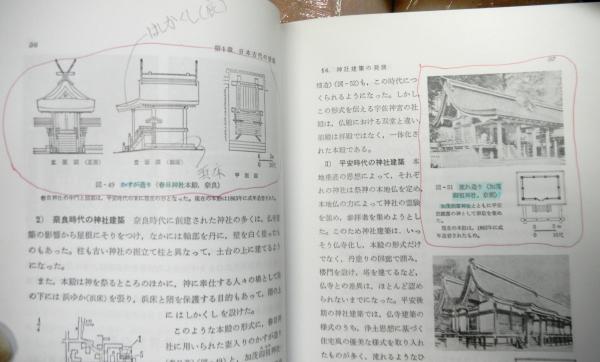 56
第1章 日本古代の建築
はしかくし(庇)
浜床
図-49 かすが造り(春日神社本殿,奈良)
春日神社の中門と廻廊は,平安時代の末に现在の形となった。現在の本殿は1863年に式年造営された。
2) 奈良時代の神社建築 奈良時代に創建された神社の多くは,仏寺建
築の影響から屋根にそりをつけ,なかには軸部を丹に,壁を白く
のもあった。柱も古い神社の掘立て柱と異なって,土台の上に建てるよう
になった。
また,本殿は神を祭るところのほかに,神に奉仕する人々の場として
の下には浜ゆか(浜床)を張り,浜床と階を保護する目的もあって,
にはしかくしを設けた。
このような本殿の形式に,春日神
社に用いられた妻入りのかすが造り
57
§4. 神社建築の発展
構造)(図-52)も,この時代につ
くられるようになった。しかし
この形式を伝える宇佐神宮の社
殿は,仏殿における双堂と違い,
前殿は拝殿ではなく,一体化さ
れた本殿である。
3) 平安時代の神社建築 本
地垂迹の思想によって,それぞ
れの神社は祭神の本地仏を定め,
本地仏の力によって神社の霊験
を強め,参拝者を集めようとし
た。このため神社建築は,いっ
そう仏寺化し,本殿の形式だけ
でなく,丹塗りの回廊で囲み,
楼門を設け,塔を建てるなど,
仏寺との差異は,ほとんど認め
られないまでになった。平安後
期の神社建築では,仏堂建築の
様式のうち,浄土思想に基づく
住宅風の優美な様式を取り入れ
たものが多く,流れるようなひ
図-51 流れ造り(加茂
御祖神社,京都)
現在の本殿は,1863年に式
年造営されたもの。